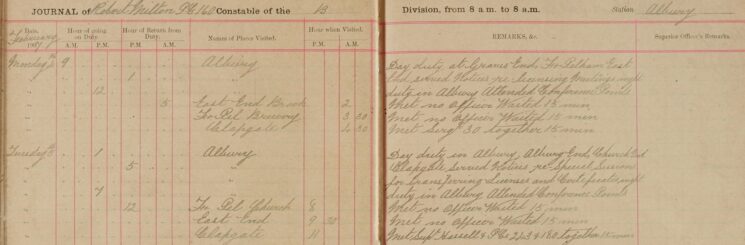 JOURNAL of Robert Milton P.C. 160 Constable of the B Division, from 8 a.m. to 8 a.m. Station Albury
Date, Hour of going on Duty. Hour of Return from Duty. Names of Places Visited. Hour when Visited. REMARKS, &c. Superior Officer's Remarks.
February
A.M. P.M. A.M. P.M. P.M. A.M.
Monday 9 Albury Day duty at Graves End, Fx Pelham East
" 1 " End served Notices re Licensing Meetings, night
" 12 " duty in Albury Attended Conference Points
" 5 East End 2 Met no Officer Waited 15 min
" Fx Pel Brewery 3 30 Met no Officer Waited 15 min
" Clapgate 4 30 Met Sergt 30 together 15 min
Tuesday 1 Albury Day duty in Albury, Albury End, Church End
" 5 " Clapgate Served Notices re Special Sessions
" for transferring Licenses and Certificates, night
" 7 " duty in Albury Attended Conference Points
" 12 Fx Pel Church 8 Met no Officer Waited 15 min
" East End 9 30 Met no Officer Waited 15 min
" Clapgate 11 Met Supt Hassell & PCs 243 & 180 together 15 min